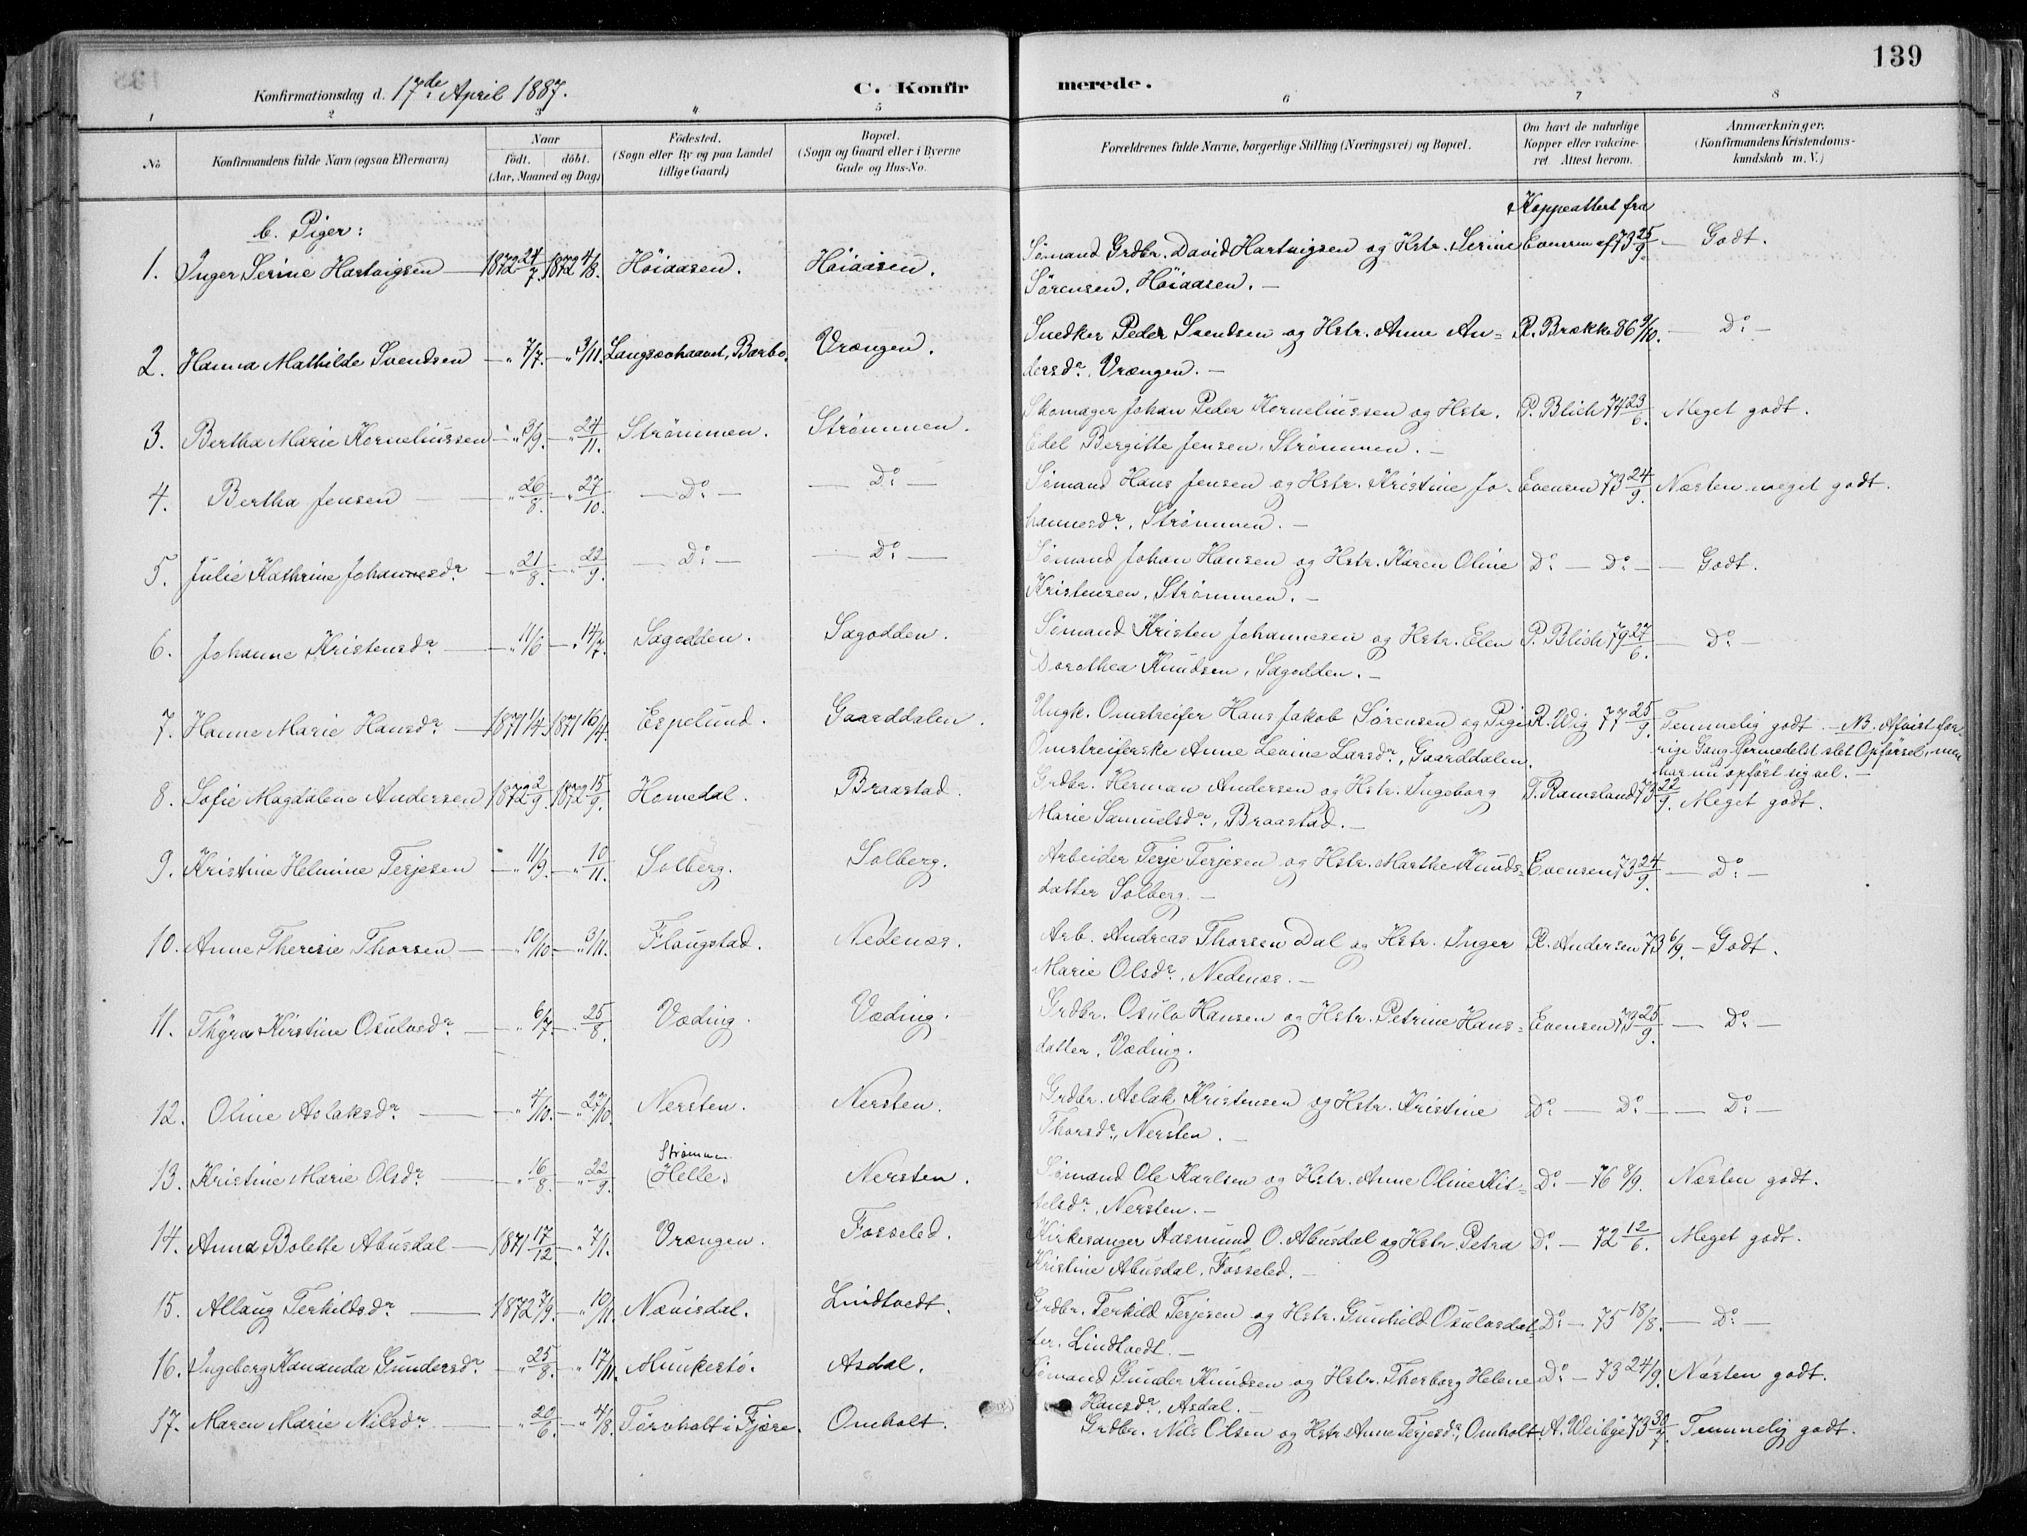 139
Konfirmationsdag d. 17de April 1887. C. Konfirmerede.
1 2 3 " 5 6 7 8
No
Konfirmandens fulde Navn (ogsaa Efternavn)
Naar født. døbt. (Aar, Maaned og Dag)
Fødested. (Sogn eller By og paa Landet tillige Gaard)
Bopæl. (Sogn og Gaard eller i Byerne Gade og Hus-No.
Forældrenes fulde Navne, borgerlige Stilling (Næringsvei) og Bopæl.
Om havt de naturlige Kopper eller vakcineret. Attest herom.
Anmærkninger. (Konfirmandens Kristendomskundskab m. V.)
b. Piger:
Koppeattest fra
1. Inger Serine Hartvigsen — 1872 24/7. 1872 4/8. Höiaasen. Höiaasen. Sømand Grdbr. David Hartvigsen og Hstr. Serine Evensen af 73 25/9. — Godt.
Sørensen, Höiaasen. —
2. Hanna Mathilde Svendsen — " 7/7. — " 3/11. Langsævhaavet, Barbo. Vrængen. Snedker Peder Svendsen og Hstr. Anne An= R. Brække 86 9/10. — Do. —
dersdr., Vrængen. —
3. Bertha Marie Korneliussen — " 3/9. — " 24/11. Strømmen. Strømmen. Skomager Johan Peder Korneliussen og Hstr. P. Blich 74 23/6. Meget godt.
Edel Bergitte Jensen, Strømmen. —
4. Bertha Jensen — " 26/8. — " 27/10. — Do. — — Do. — Sømand Hans Jensen og Hstr. Kristine Jo- Evensen 73 24/9. Næsten meget godt.
hannesdr., Strømmen. —
5. Julie Kathrine Johannesdr. — " 21/8. — " 22/9. — Do. — — Do. — Sømand Johan Hansen og Hstr. Karen Oline Do. — Do. — — Godt.
Kristensen, Strømmen. —
6. Johanne Kristensdr. — " 11/6 — " 14/7. Sagodden. Sagodden. Sømand Kristen Johannesen og Hstr. Elen P. Blich 79 27/6. — Do. —
Dorothea Knudsen, Sagodden. —
7. Hanne Marie Hansdr. — 1871 1/4. 1871 16/4. Espelund. Gaarddalen. Ungk. Omstreifer Hans Jakob Sørensen og Pige R. Wig 77 25/9. Temmelig godt. — NB. Afvist for-
Omstreiferske Anne Levine Larsdr., Gaarddalen. rige Gang formedelst slet Opførsel, men
har nu opført sig vel. —
8. Sofie Magdalene Andersen 1872 2/9. 1872 15/9. Homedal. Braastad. Grdbr. Herman Andersen og Hstr. Ingeborg T. Ramsland 73 22/9. Meget godt.
Marie Samuelsdr., Braastad. —
9. Kristine Helmine Terjesen — " 11/9. — " 10/11. Solberg. Solberg. Arbeider Terje Terjesen og Hstr. Marthe Knuds= Evensen 73 24/9. — Do. —
datter Solberg. —
10. Anne Theresie Thorsen — " 10/10. — " 3/11. Flougstad. Nedenæs. Arb. Andreas Thorsen Dal og Hstr. Inger R. Andersen 73 6/9. — Godt.
Marie Olsdr., Nedenæs. —
11. Thyra Kirstine Osulvsdr. — " 6/7. — " 25/8. Væding. Væding. Grdbr. Osulv Hansen og Hstr. Petrine Hans= Evensen 73 25/9. — Do. —
datter, Væding.
12. Oline Aslaksdr. — " 4/10. — " 27/10. Nersten. Nersten. Grdbr. Aslak Kristensen og Hstr. Kristine Do. — Do. — — Do. —
Thorsdr., Nersten. —
13. Kristine Marie Olsdr. — " 16/8. — " 22/9. Strømmen (Helle.) Nersten. Sømand Ole Karlsen og Hstr. Anne Oline Kit= Do. — 76 8/9. Næsten godt.
telsdr., Nersten. —
14. Anna Bolette Abusdal — 1871 17/12. — " 7/1. Vrængen. Fosseled. Kirkesanger Aasmund O. Abusdal og Hstr. Petra Do. — 72 12/6. Meget godt.
Kristine Abusdal, Fosseled. —
15. Allaug Terkildsdr. — 1872 7/9. — " 10/11. Nævisdal. Lindtvedt. Grdbr. Terkild Terjesen og Hstr. Gunhild Osulvsdat= Do. — 75 18/8. — Do. —
ter, Lindtvedt. —
16. Ingeborg Kananda Gundersdr. — " 25/8. — " 17/11. Munkestø. Asdal. Sømand Gunder Knudsen og Hstr. Thorborg Helene Do. — 73 24/9. Næsten godt.
Hansdr., Asdal. —
17. Maren Marie Nilsdr. — " 20/6. — " 4/8. Tørvholt i Fjære. Omholt. Grdbr. Nils Olsen og Hstr. Anne Terjesdr., Omholt. A. Weibye 73 30/7. Temmelig godt.